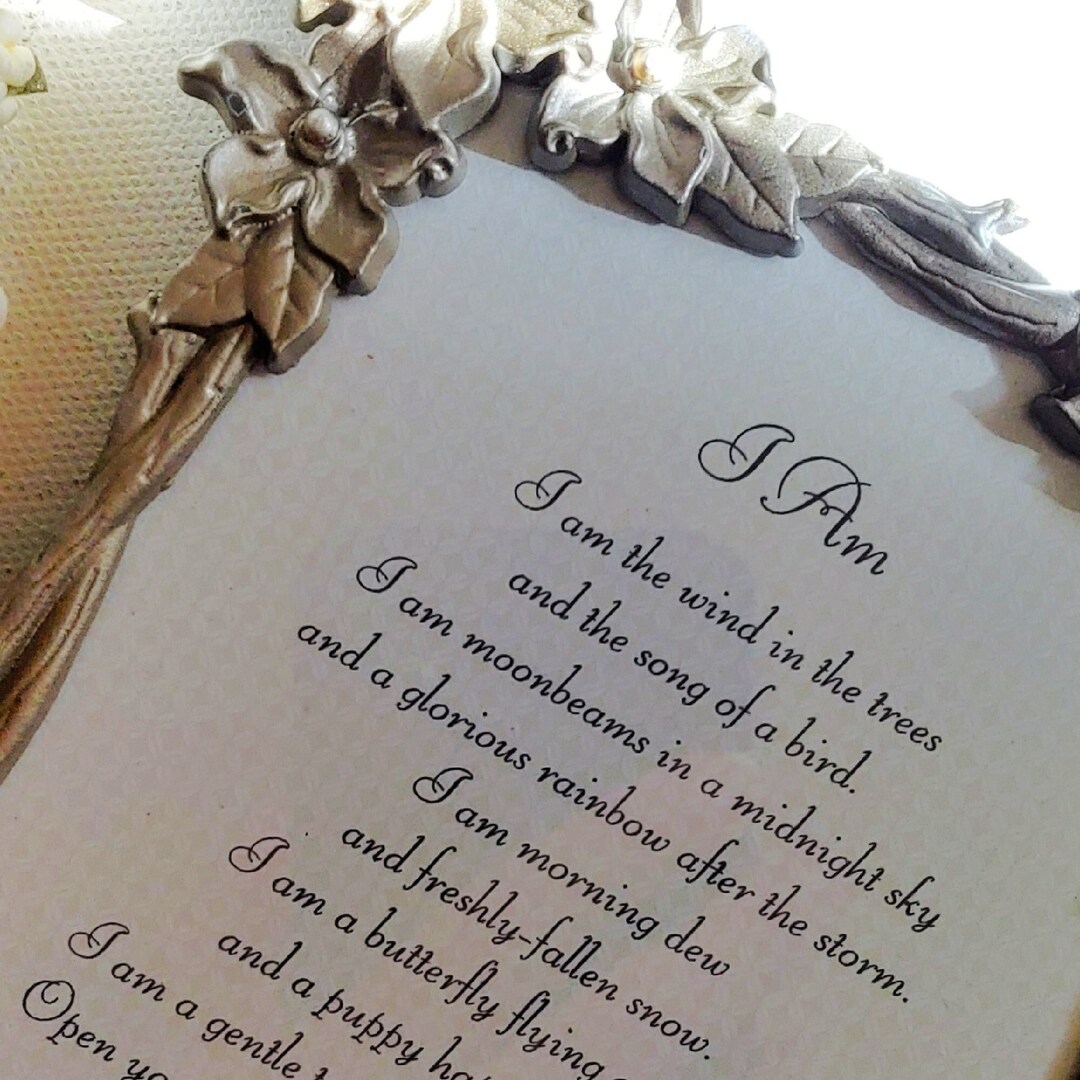 I Am
I am the wind in the trees
and the song of a bird.
I am moonbeams in a midnight sky
and a glorious rainbow after the storm.
I am morning dew
and freshly-fallen snow.
I am a butterfly flying
and a puppy
I am a gentle
Open